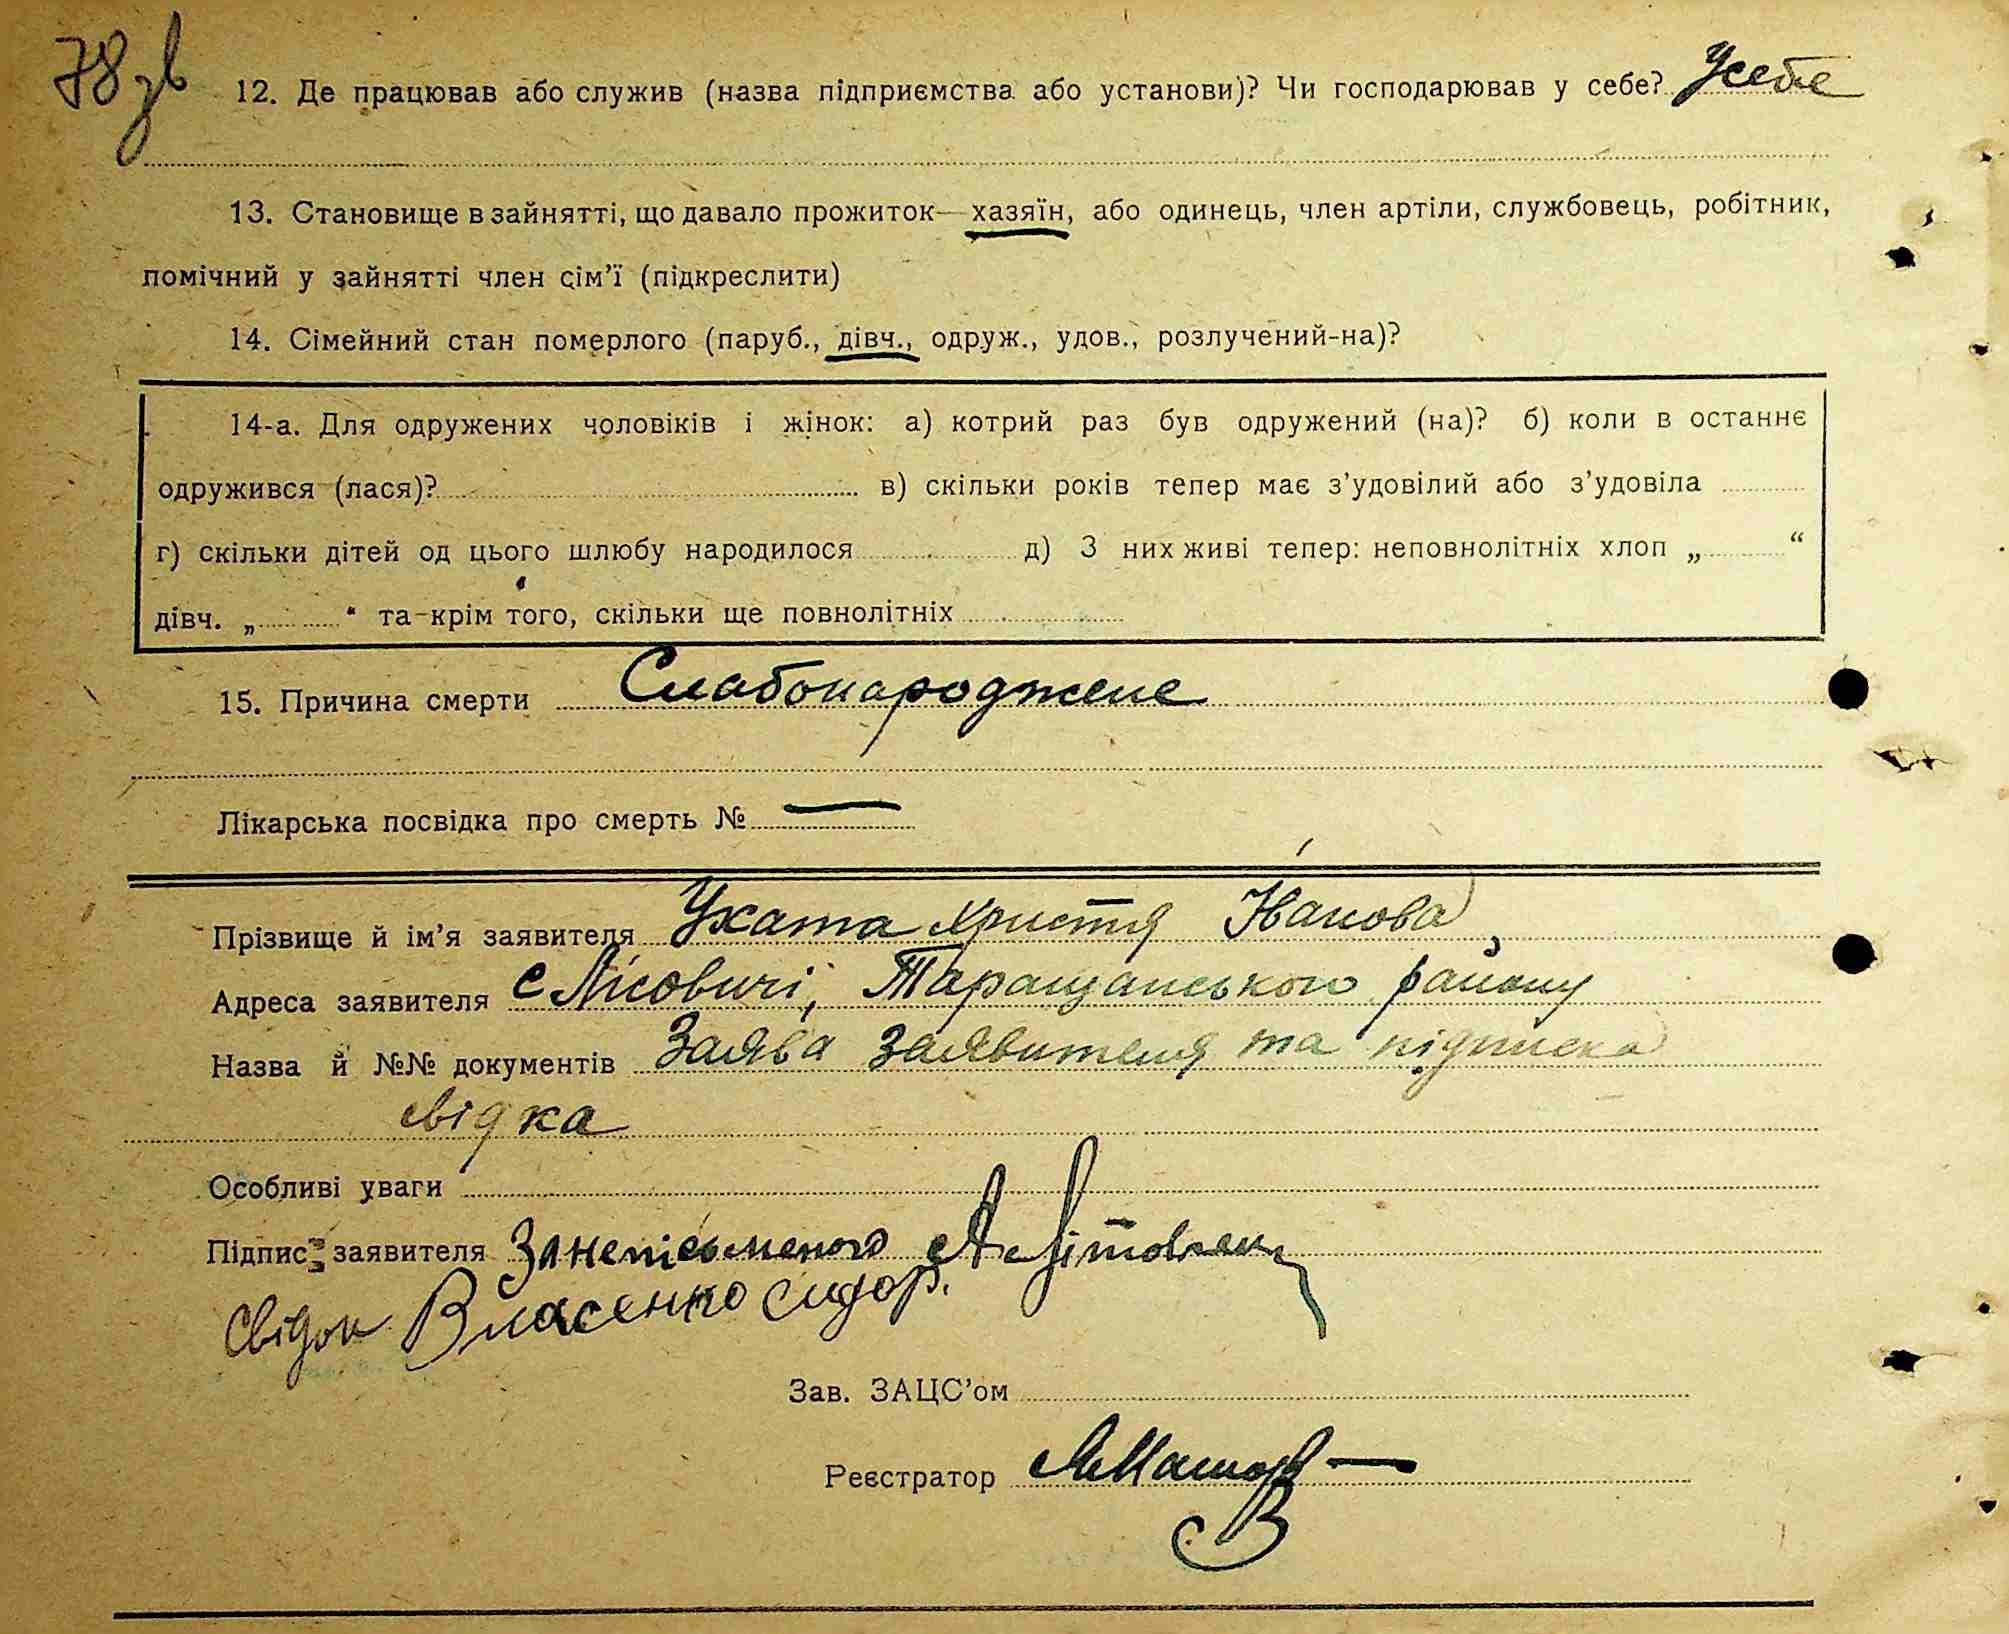 78 зв
12. Де працював або служив (назва підприємства або установи)? Чи господарював у себе? У себе
13. Становище в зайнятті, що давало прожиток—хазяїн, або одинець, член артіли, службовець, робітник,
помічний у зайнятті член сім’ї (підкреслити)
14. Сімейний стан померлого (паруб., дівч., одруж., удов., розлучений-на)?
14-а. Для одружених чоловіків і жінок: а) котрий раз був одружений (на)? б) коли в останнє
одружився (лася)? в) скільки років тепер має з’удовілий або з’удовіла
г) скільки дітей од цього шлюбу народилося д) З них живі тепер: неповнолітніх хлоп „ “
дівч. „ “ та крім того, скільки ще повнолітніх
15. Причина смерти Слабонароджене
Лікарська посвідка про смерть № —
Прізвище й ім’я заявителя Ухата Христя Іванова
Адреса заявителя с Лісовичі, Таращанського району
Назва й №№ документів Заява заявителя та підписка
свідка
Особливі уваги
Підпис заявителя За неписьменого А Літовчен
Свідок Власенко Сидор.
Зав. ЗАЦС’ом
Реєстратор